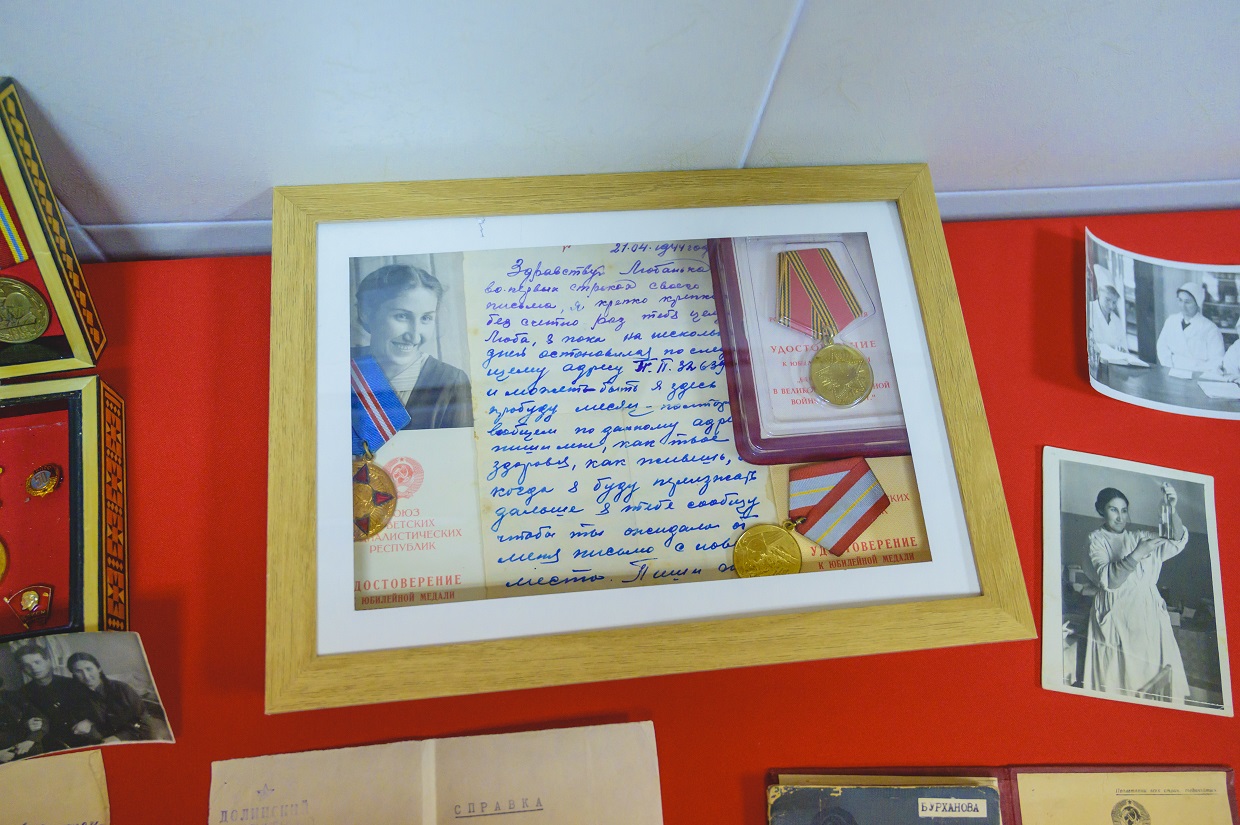 21.04.1944 год
Здравствуй Любанька
во-первых строках своего
письма, я крепко крепко
без считно раз тебя цел
Люба, я пока на несколь
дней остановился по след
щему адресу П.П. 32639
и может быть я здесь
пробуду месяц-полтор
вообщем по данному адре
пиши мне, как твое
здоровья, как живешь, а
когда я буду приезжать
дальше я тебе сообщу
чтобы ты ожидала от
меня письмо с нов
места. Пиши
СОЮЗ
ЕТСКИХ
ИАЛИСТИЧЕСКИХ
РЕСПУБЛИК
ДОСТОВЕРЕНИЕ
К ЮБИЛЕЙНОЙ МЕДАЛИ
УДОСТ ЕНИЕ
К ЮБ
В ВЕЛИ ННОЙ
ВОЙН
СКИХ
ДОСТОВЕРЕНИЕ
К ЮБИЛЕЙНОЙ МЕДАЛИ
ДОЛИНСКИЙ
СПРАВКА
БУРХАНОВА